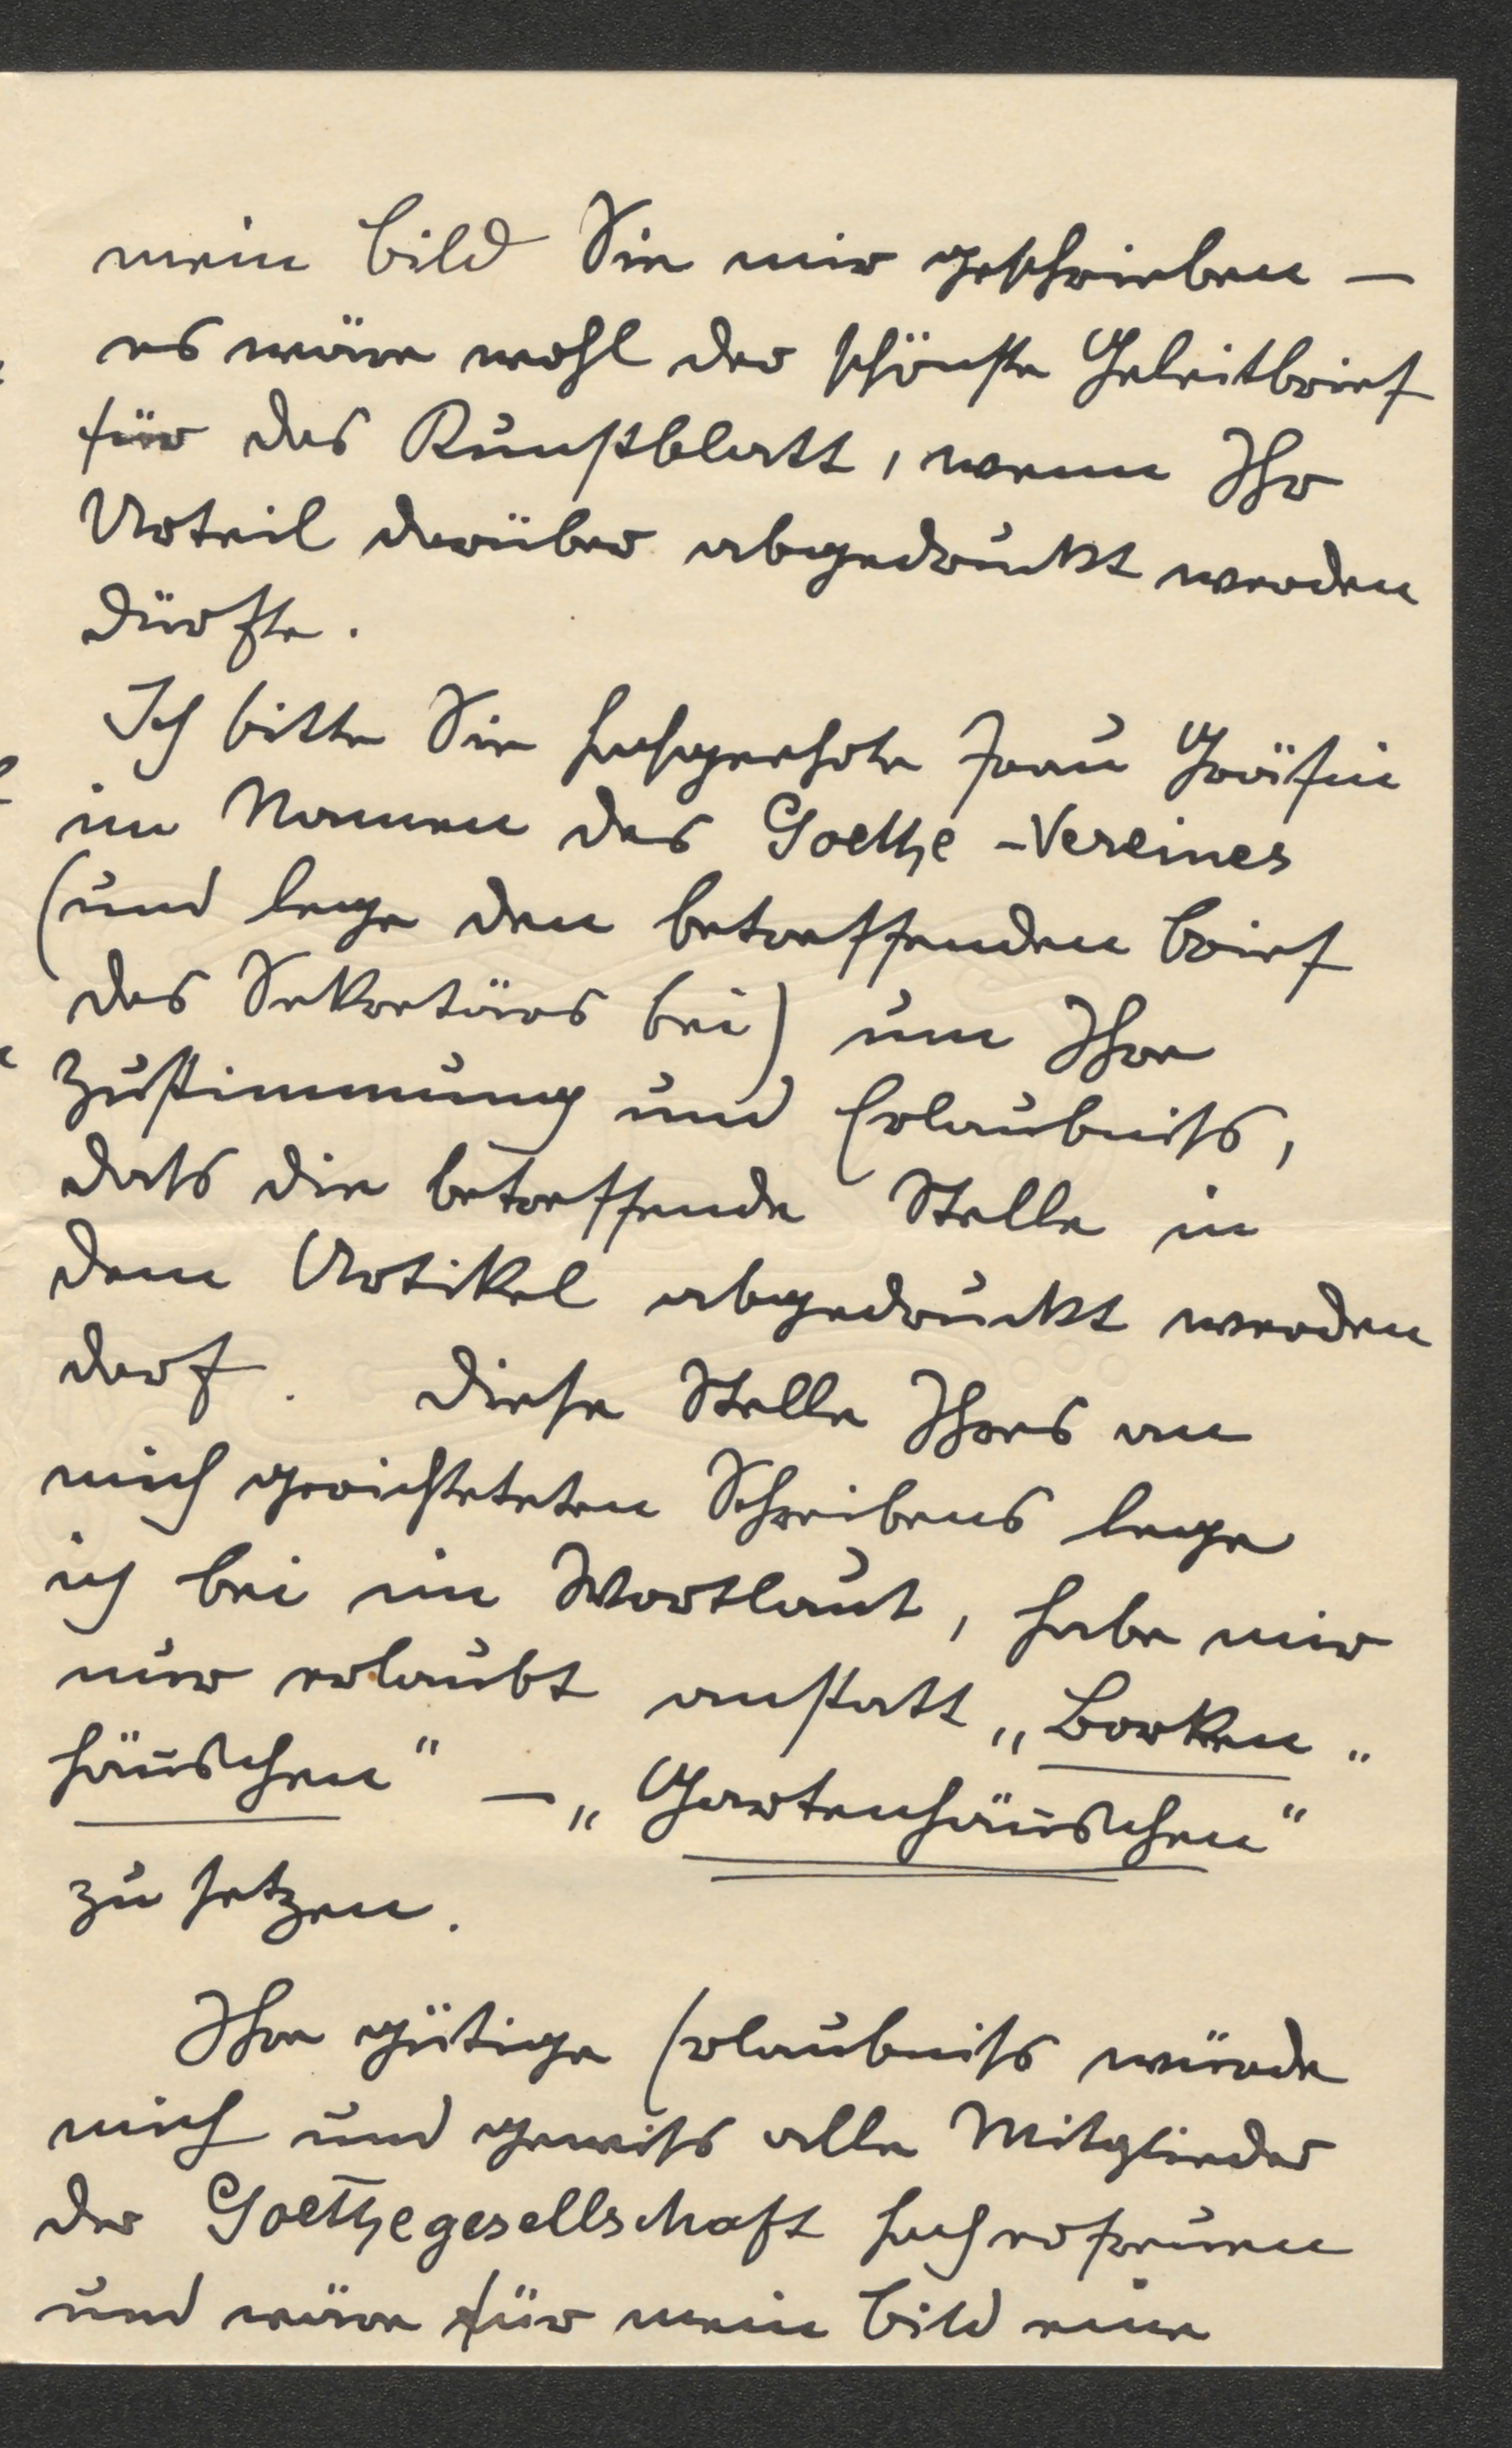 mein Bild Sie mir geschrieben —
es wäre wohl der schönste Geleitbrief
für das Kunstblatt, wenn Ihr
Urteil darüber abgedruckt werden
dürfte.
Ich bitte Sie hochgeehrte Frau Gräfin
im Namen des Goethe-Vereines
(und lege den betreffenden Brief
des Sekretärs bei) um Ihre
Zustimmung und Erlaubniss,
dass die betreffende Stelle in
dem Artikel abgedruckt werden
darf. Diese Stelle Ihres an
mich gerichteten Schreibens lege
ich bei im Wortlaut, habe mir
nur erlaubt anstatt „Borken„
häuschen“ — „Gartenhäuschen“
zu setzen.
Ihre gütige Erlaubniss würde
mich und gewiss alle Mitglieder
der Goethegesellschaft hocherfreuen
und wäre für mein Bild eine